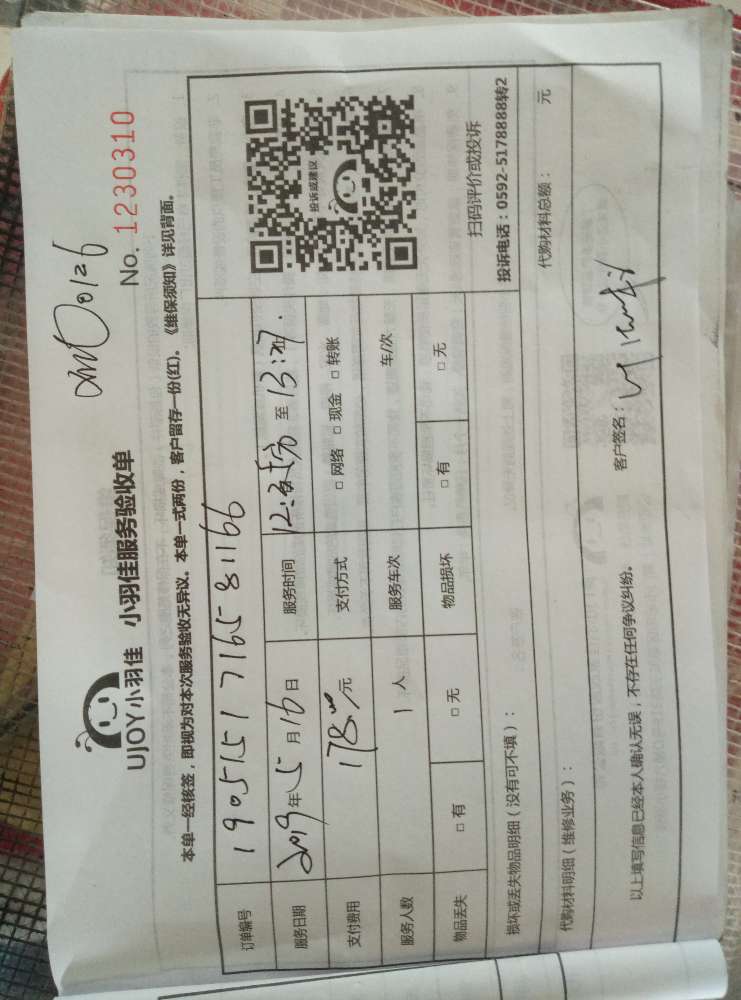 UJOY小羽佳 小羽佳服务验收单
No. 1230310
本单一经核签，即视为对本次服务验收无异议。本单一式两份，客户留存一份(红)。《维保须知》详见背面。
订单编号 1905151716581166
服务日期 2019年5月16日 服务时间 至 13:27.
支付费用 178元 支付方式 □ 网络 □ 现金 □ 转账
服务人数 1人 服务车次 车/次
物品丢失 □ 有 □ 无 物品损坏 □ 有 □ 无
投诉或建议
扫码评价或投诉
投诉电话：0592-5178888转2
损坏或丢失物品明细（没有可不填）：
代购材料明细（维修业务）： 代购材料总额： 元
以上填写信息已经本人确认无误，不存在任何争议纠纷。 客户签名：